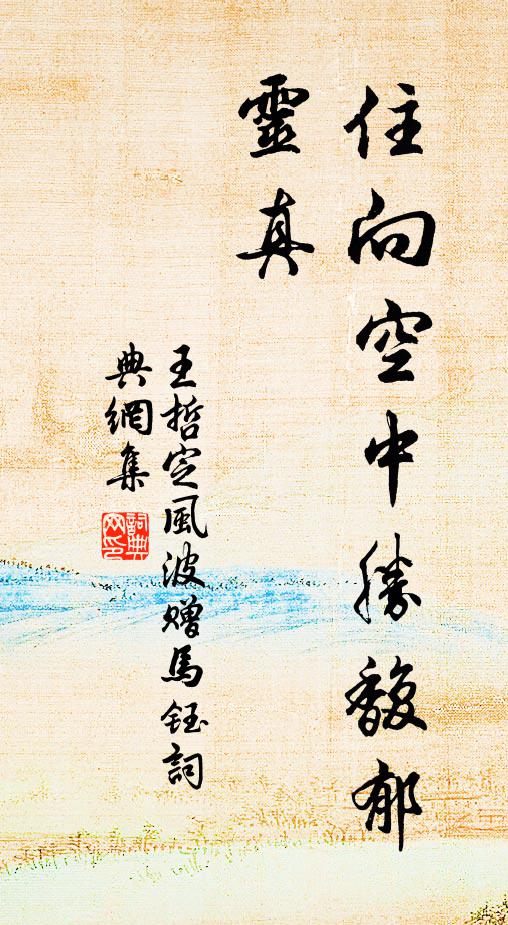 住向空中勝馥郁
靈真
王哲定風波贈馬鈺詞
典網集
詞典
網印